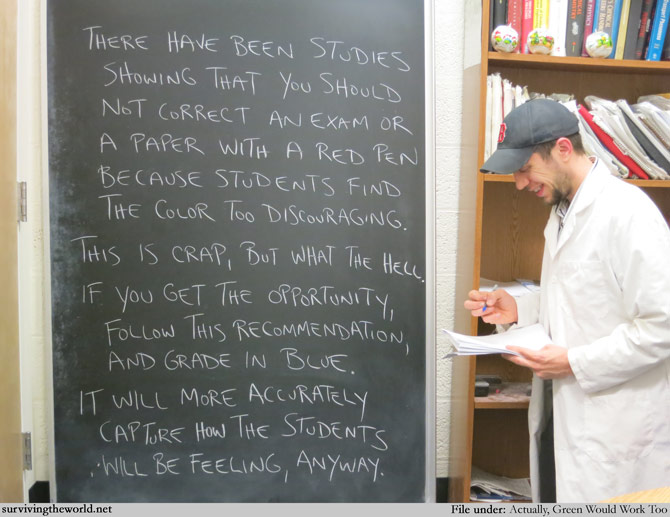 THERE HAVE BEEN STUDIES
SHOWING THAT YOU SHOULD
NOT CORRECT AN EXAM OR
A PAPER WITH A RED PEN
BECAUSE STUDENTS FIND
THE COLOR TOO DISCOURAGING.
THIS IS CRAP, BUT WHAT THE HELL.
IF YOU GET THE OPPORTUNITY,
FOLLOW THIS RECOMMENDATION,
AND GRADE IN BLUE.
IT WILL MORE ACCURATELY
CAPTURE HOW THE STUDENTS
WILL BE FEELING, ANYWAY.
survivingtheworld.net
File under: Actually, Green Would Work Too